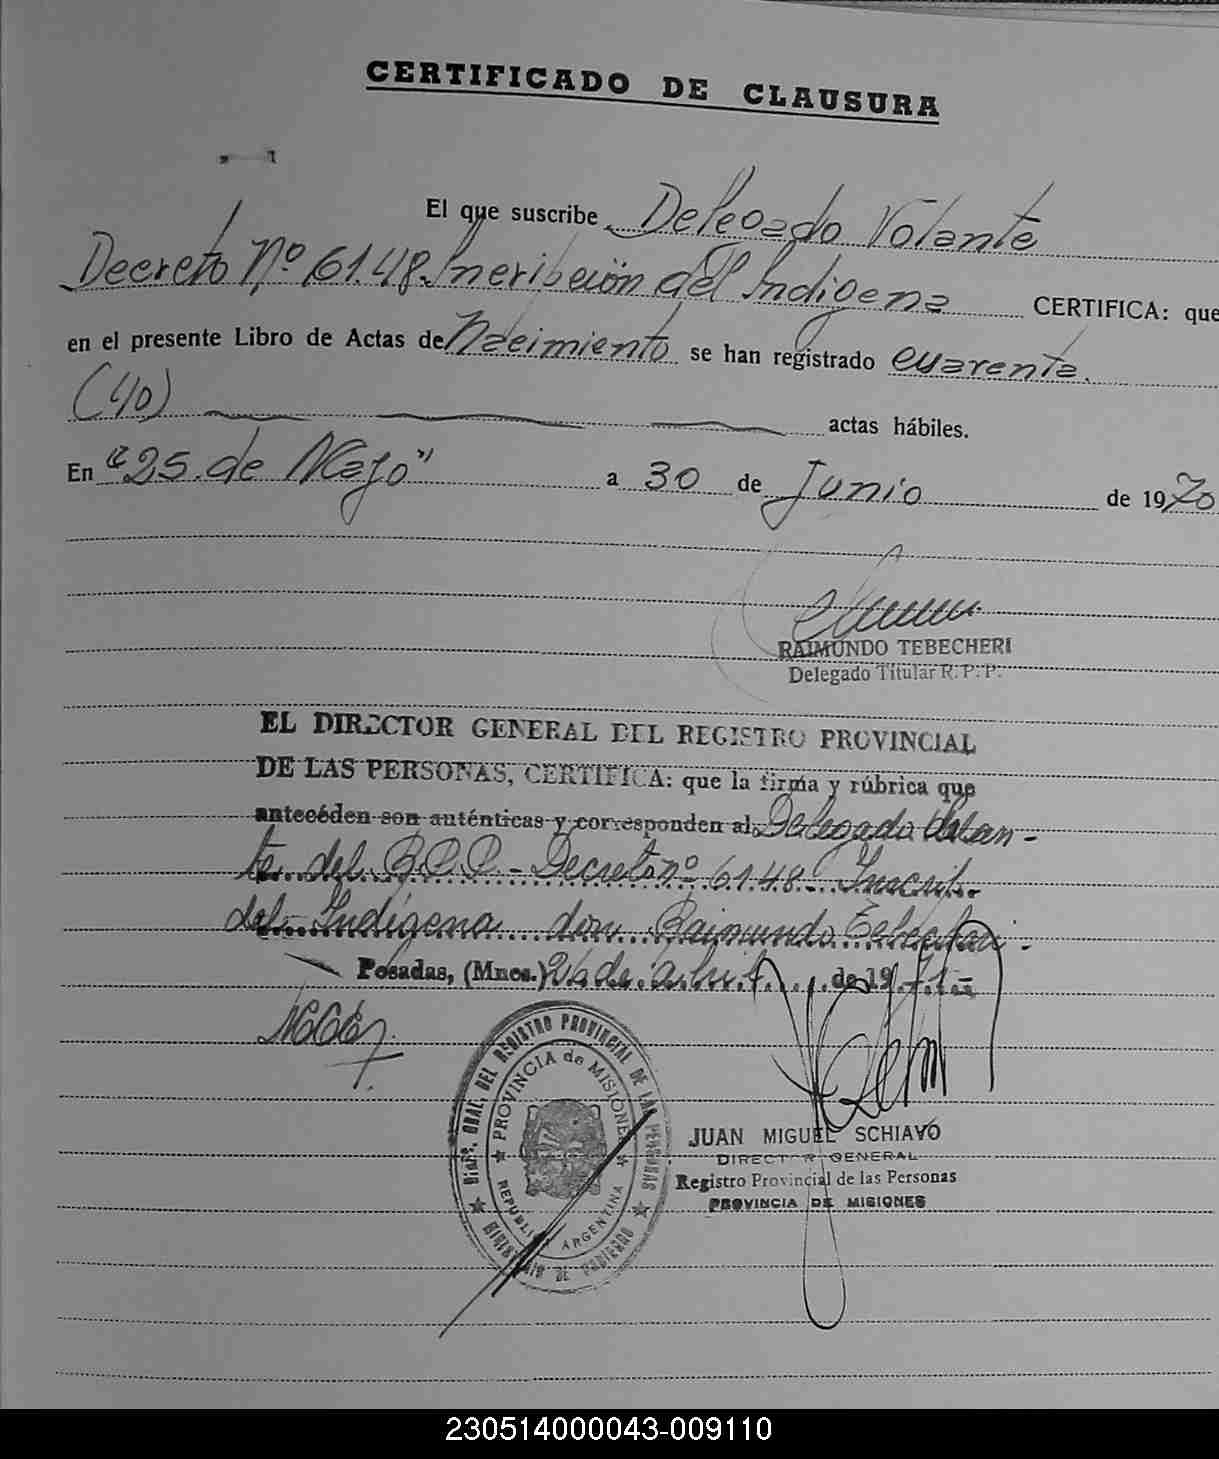 CERTIFICADO DE CLAUSURA
El que suscribe Delegado Volante
Decreto Nº 61.48 Inscripción del Indigena CERTIFICA: que
en el presente Libro de Actas de Nacimiento se han registrado cuarenta
(40) actas hábiles.
En "25 de Mayo" a 30 de Junio de 1970
RAIMUNDO TEBECHERI
Delegado Titular R. P. P.
EL DIRECTOR GENERAL DEL REGISTRO PROVINCIAL
DE LAS PERSONAS, CERTIFICA: que la firma y rúbrica que
antecéden son auténticas y corresponden al Delegado Volan-
te del R.P.P. - Decreto nº 61.48 - Inscrip.
del Indígena don Raimundo Tebecheri.-
Posadas, (Mnes.) 26 de abril de 1971.-
DIREC. GRAL. DEL REGISTRO PROVINCIAL DE LAS PERSONAS
PROVINCIA de MISIONES
REPUBLICA ARGENTINA
MINISTERIO DE GOBIERNO
JUAN MIGUEL SCHIAVO
DIRECTOR GENERAL
Registro Provincial de las Personas
PROVINCIA DE MISIONES
230514000043-009110